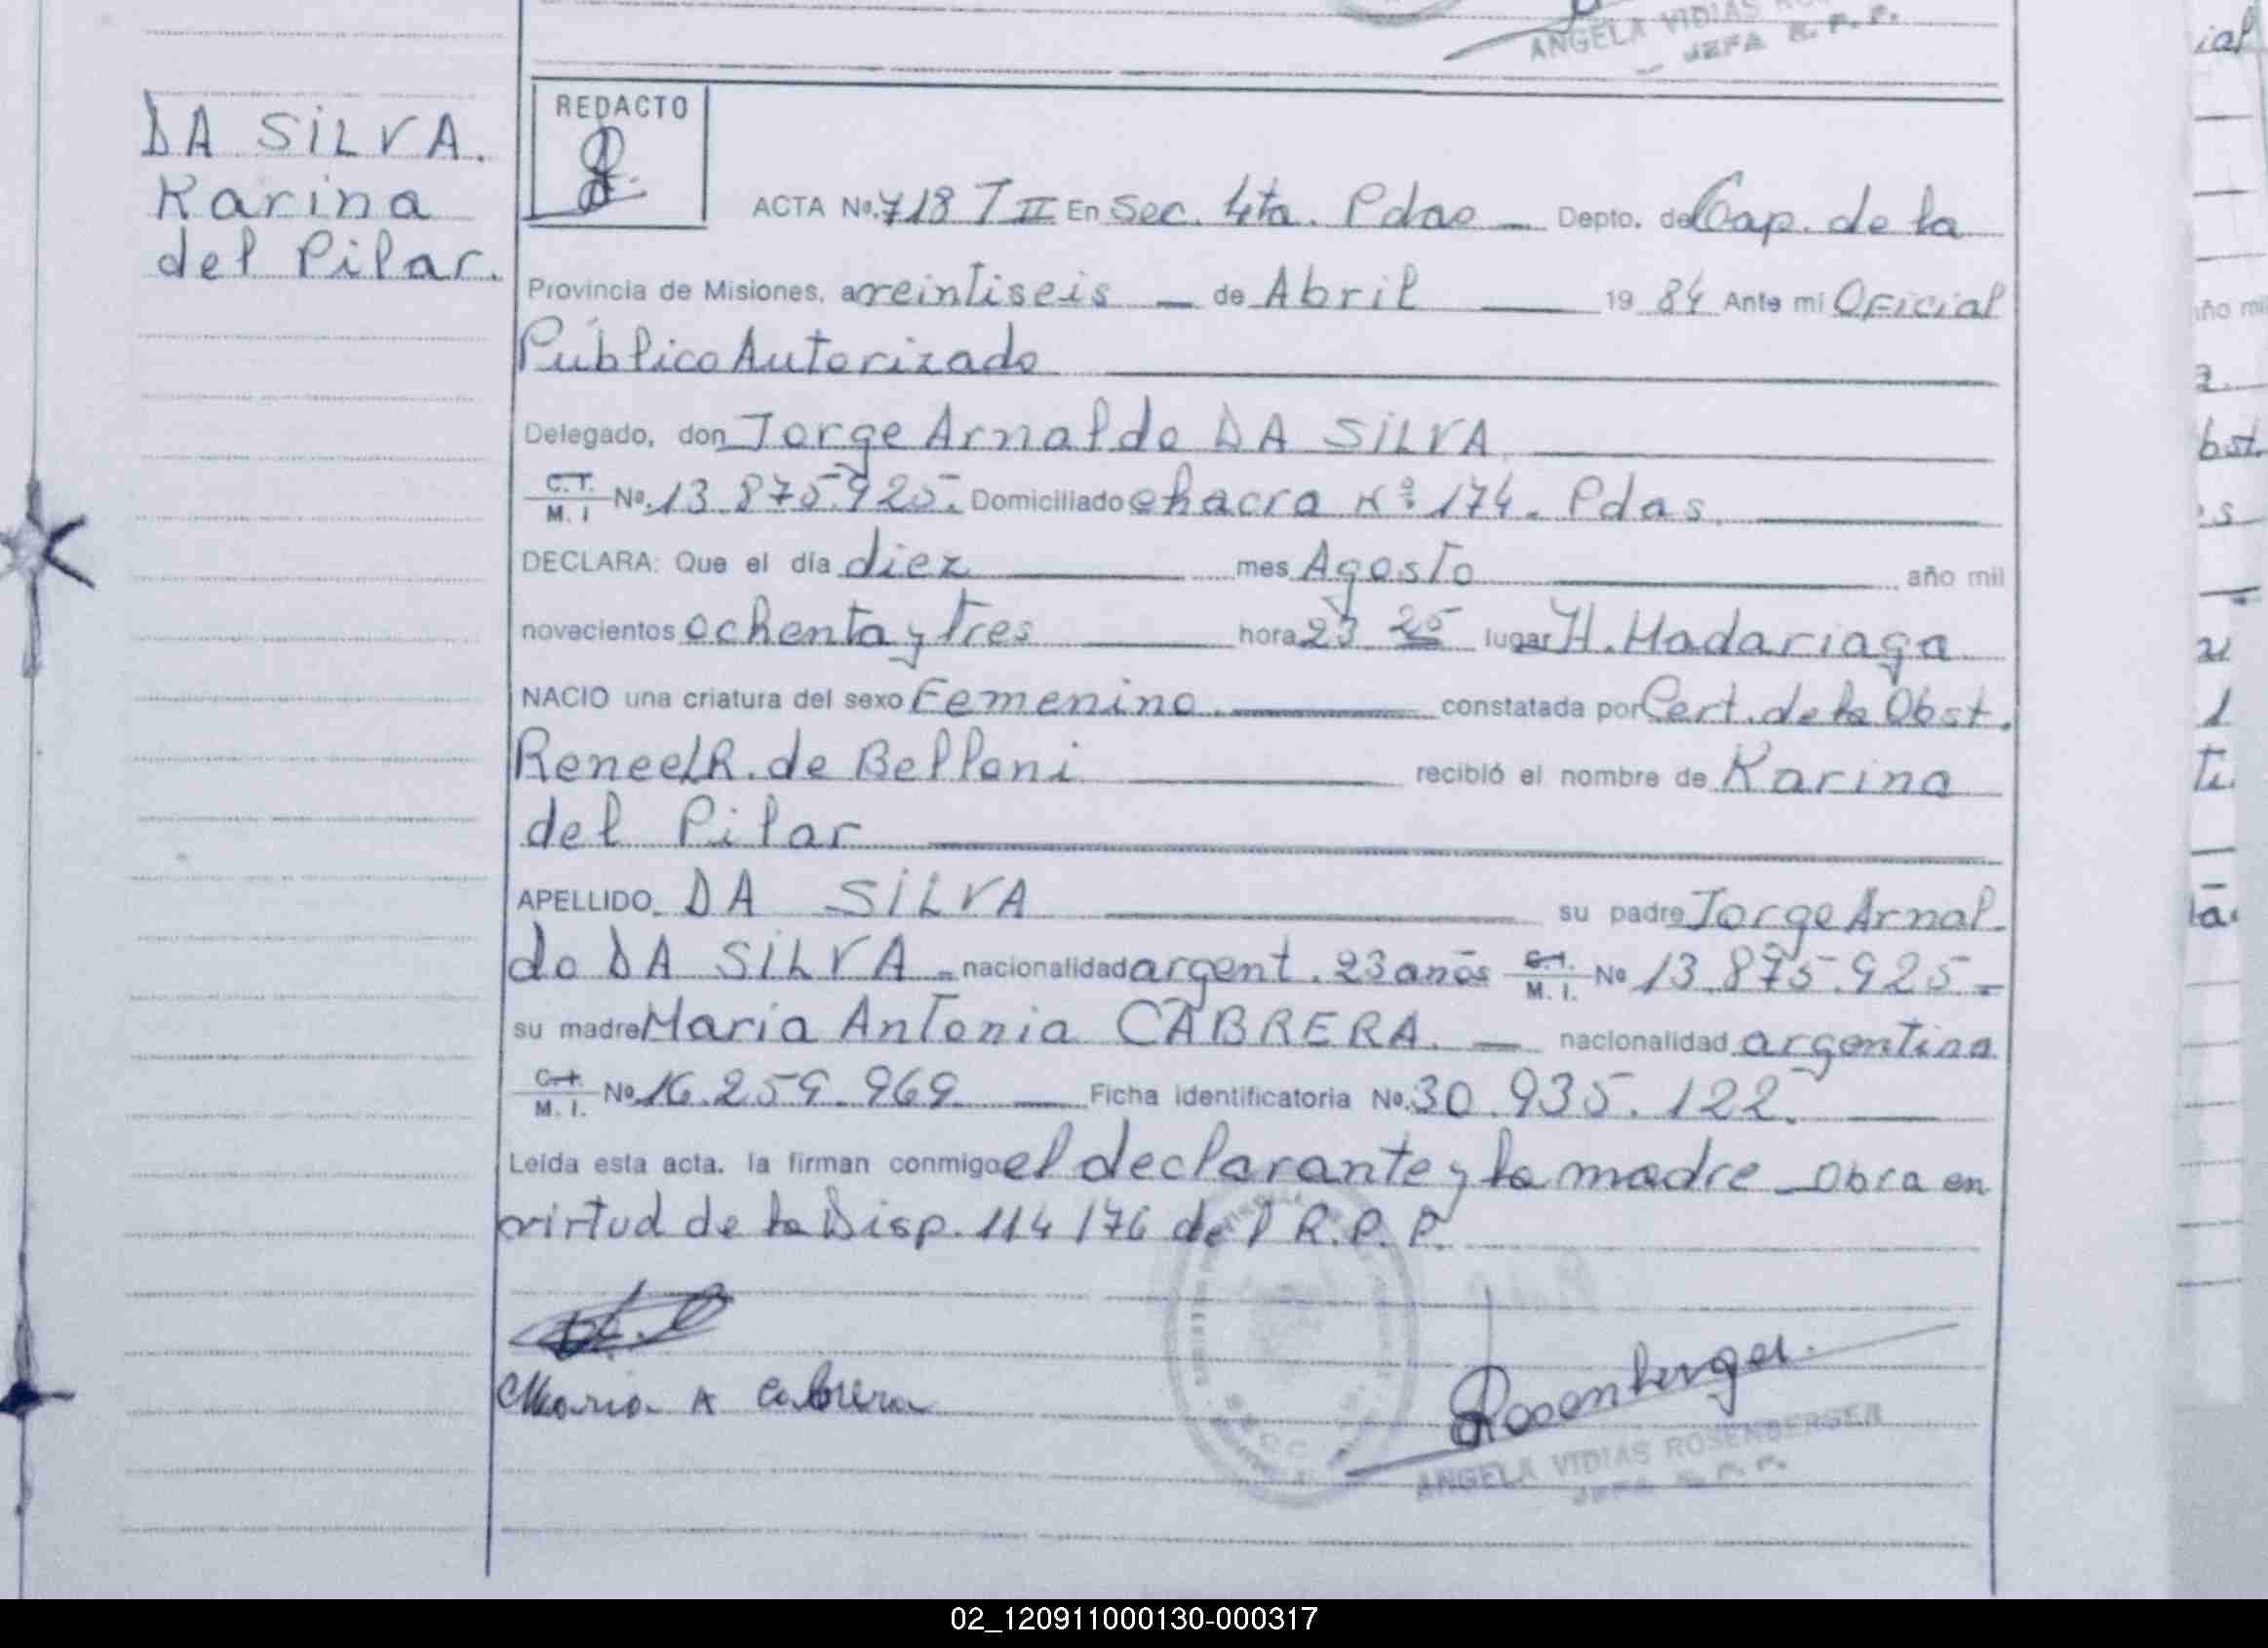 ANGELA VIDIAS
JEFA R. P. P.
DA SILVA.
Karina
del Pilar.
REDACTO
ACTA Nº. 718 T II En Sec. 4ta. Pdas — Depto. de Cap. de la
Provincia de Misiones, a veintiseis — de Abril — 19 84 Ante mi Oficial
Público Autorizado
Delegado, don Jorge Arnaldo DA SILVA
C.T. M. I Nº. 13.875.925. Domiciliado chacra Nº 174. Pdas
DECLARA: Que el día diez mes Agosto año mil
novecientos ochenta y tres hora 23 25 lugar H. Madariaga
NACIO una criatura del sexo Femenino. constatada por Cert. de la Obst.
Renee L R. de Belloni recibió el nombre de Karina
del Pilar
APELLIDO DA SILVA su padre Jorge Arnal
do DA SILVA nacionalidad argent. 23 años M. I. Nº 13.875.925-
su madre Maria Antonia CABRERA. — nacionalidad argentina
M. I. Nº 16.259.969 — Ficha identificatoria No. 30.935.122.
Leída esta acta. la firman conmigo el declarante y la madre _ Obra en
virtud de la Disp. 114/76 del R.P.P.
Maria A Cabrera
Rosenberger.
ANGELA VIDIAS ROSENBERGER
JEFA R. P. P.
02_120911000130-000317